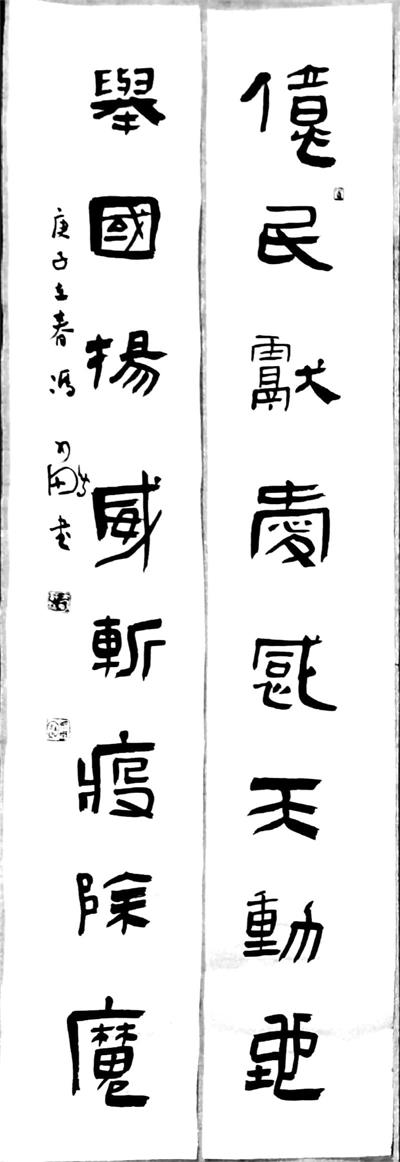 億民獻愛感天動地
舉國揚威斬疫除魔
庚子立春馮
書